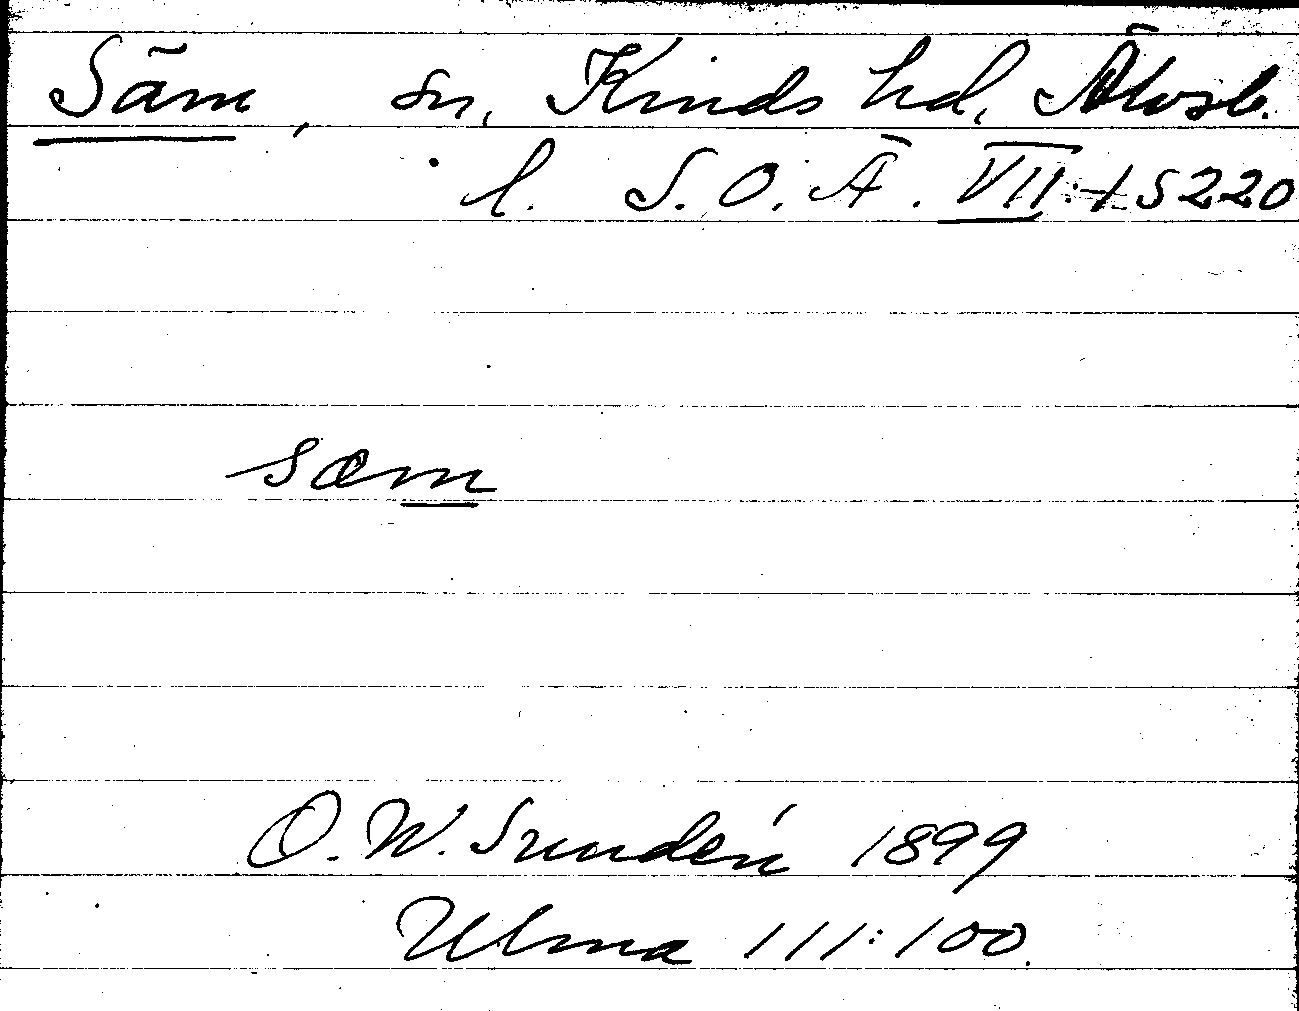 Säm, sn, Kinds hd, Älvsb.
l. S.O.Ä. VII:1 S 220
sæm
O. W. Sundén 1899
Ulma 111:100.